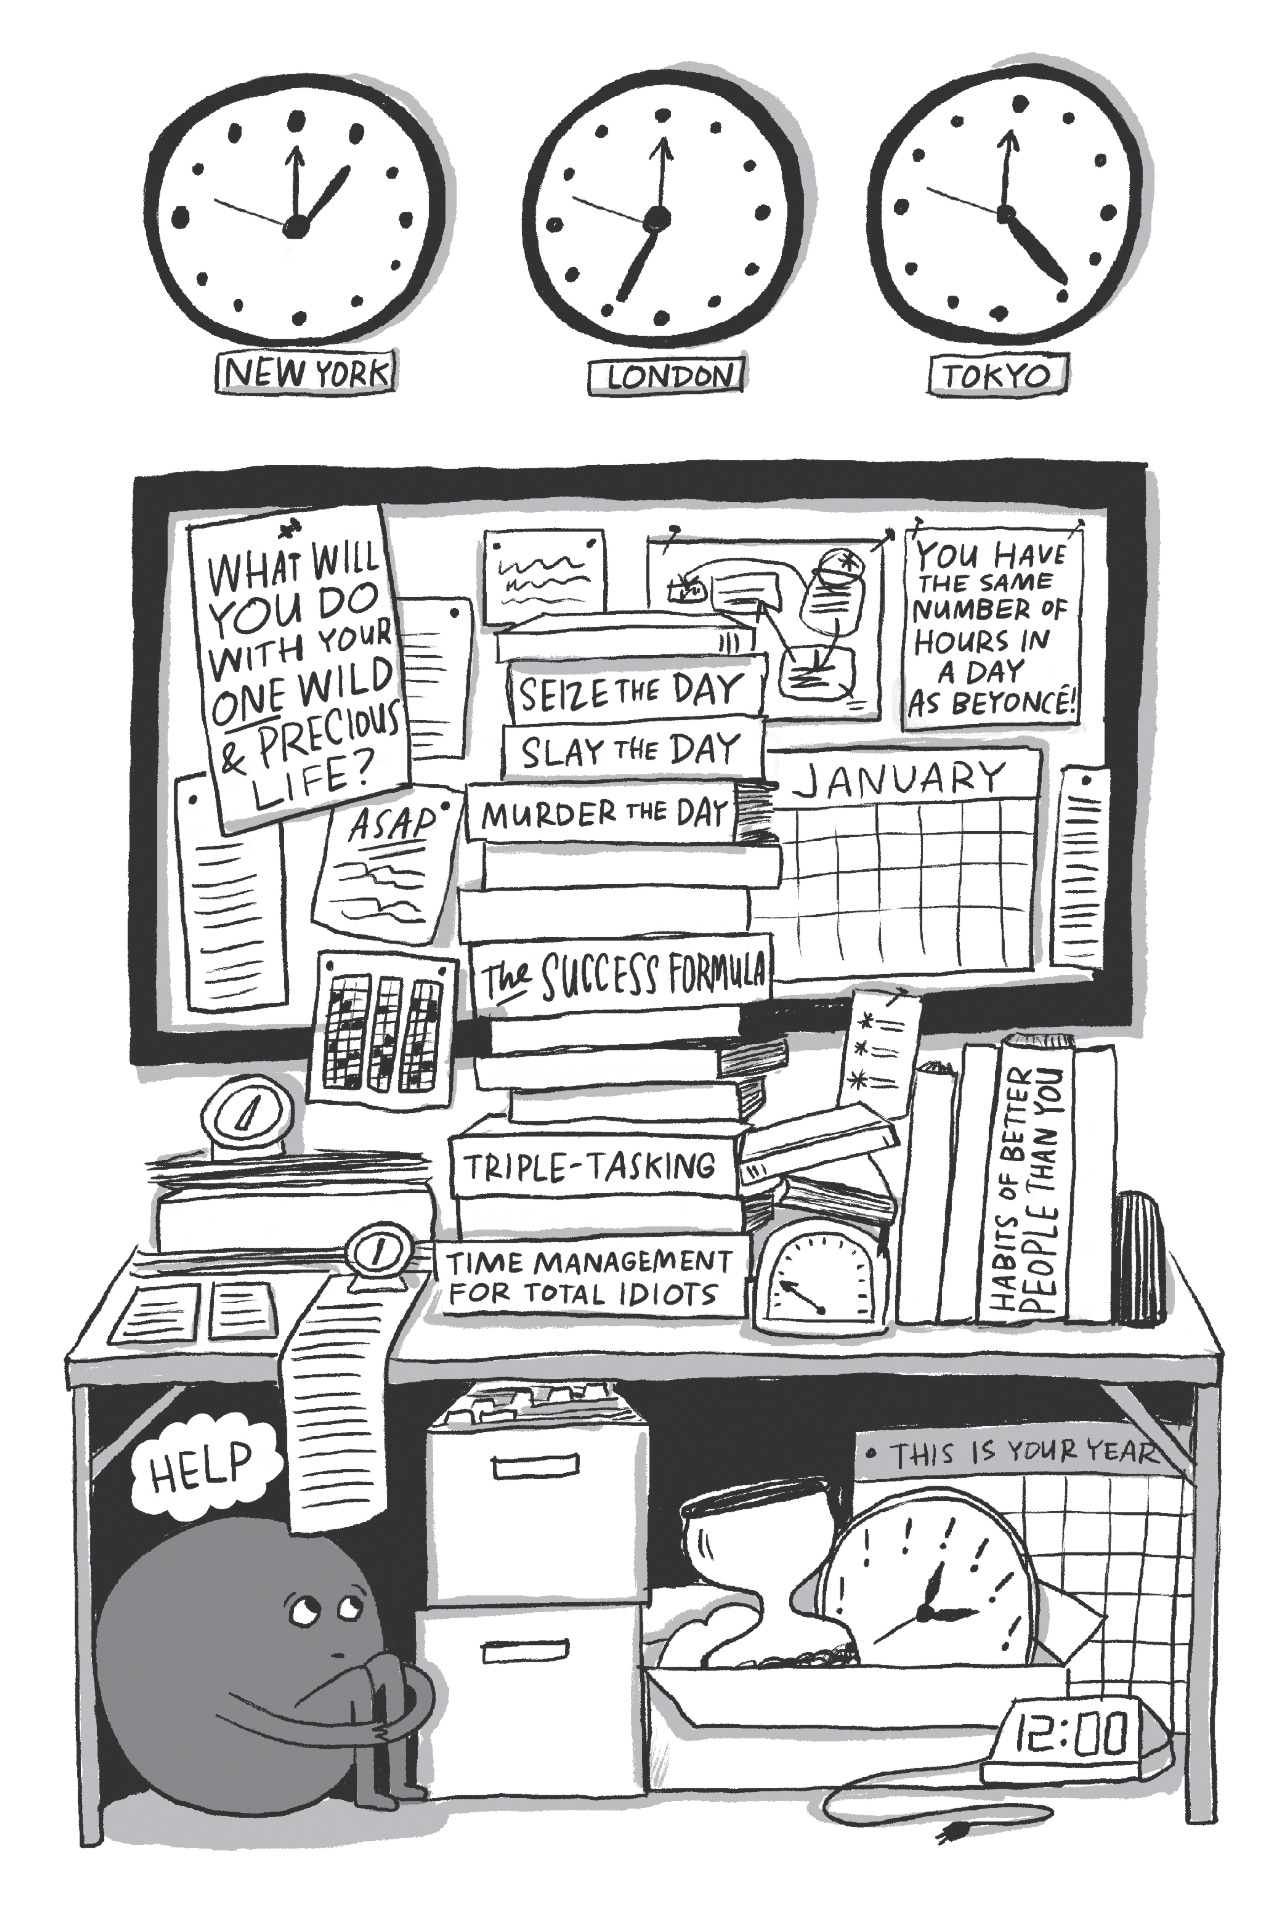 NEW YORK
LONDON
TOKYO
WHAT WILL
YOU DO
WITH YOUR
ONE WILD
& PRECIOUS
LIFE?
YOU HAVE
THE SAME
NUMBER OF
HOURS IN
A DAY
AS BEYONCÉ!
SEIZE THE DAY
SLAY THE DAY
MURDER THE DAY
JANUARY
ASAP
The SUCCESS FORMULA
TRIPLE-TASKING
TIME MANAGEMENT
FOR TOTAL IDIOTS
HABITS OF BETTER
PEOPLE THAN YOU
HELP
THIS IS YOUR YEAR
12:00